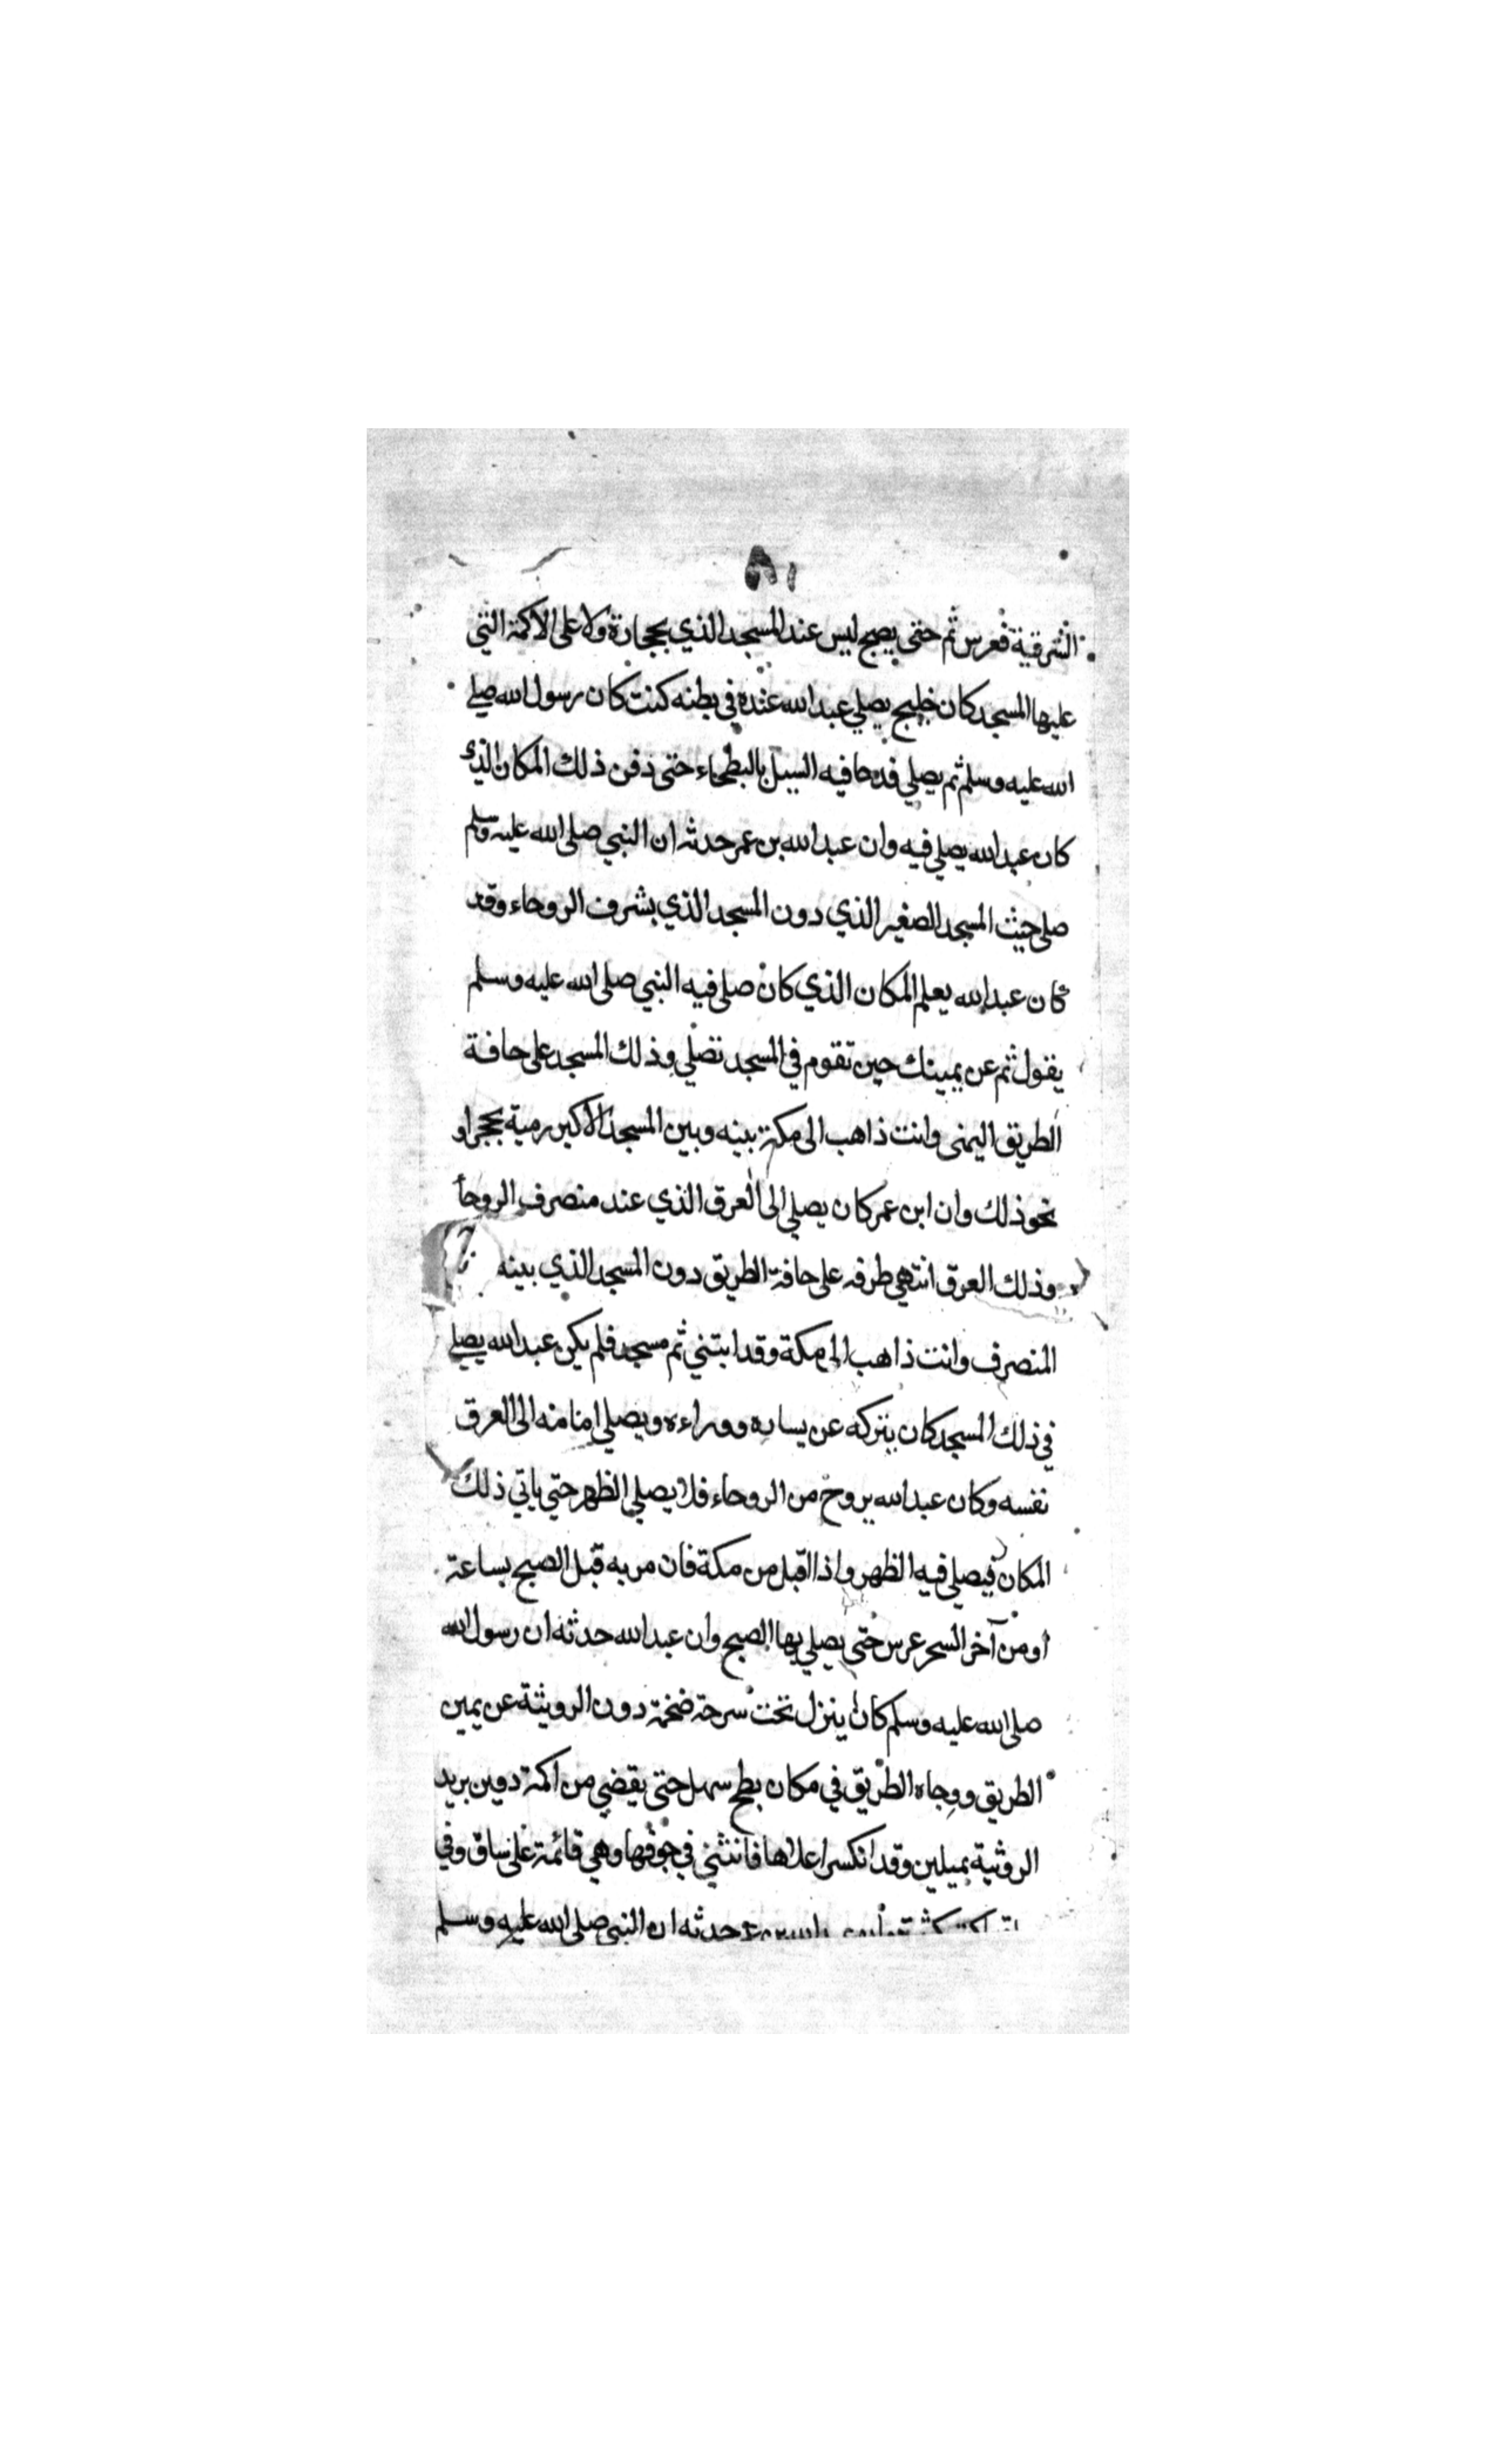 ٨١
الشرقية فعرس ثم حتى يصبح ليس عند المسجد الذي بحجارة ولا على الاكمة التي
عليها المسجد كان خليج يصلي عبد الله عنده في بطنه كنت كان رسول الله صلى
الله عليه وسلم ثم يصلي فدحا فيه السيل بالبطحاء حتى دفن ذلك المكان الذي
كان عبد الله يصلي فيه وان عبد الله بن عمر حدثه ان النبي صلى الله عليه وسلم
صلى حيث المسجد الصغير الذي دون المسجد الذي بشرف الروحاء وقد
كان عبد الله يعلم المكان الذي كان صلى فيه النبي صلى الله عليه وسلم
يقول ثم عن يمينك حين تقوم في المسجد تصلي وذلك المسجد على حافة
الطريق اليمنى وانت ذاهب الى مكة بينه وبين المسجد الاكبر رمية بحجر او
نحو ذلك وان ابن عمر كان يصلي الى العرق الذي عند منصرف الروحا
وذلك العرق انتهي طرفه على حافة الطريق دون المسجد الذي بينه
المنصرف وانت ذاهب الى مكة وقد ابتني ثم مسجد فلم يكن عبد الله يصلي
في ذلك المسجد كان يتركه عن يساره ووراءه ويصلي امامه الى العرق
نفسه وكان عبد الله يروح من الروحاء فلا يصلي الظهر حتي ياتي ذلك
المكان فيصلي فيه الظهر واذا اقبل من مكة فان مر به قبل الصبح بساعة
او من آخر السحر عرس حتى يصلي بها الصبح وان عبد الله حدثه ان رسول الله
صلى الله عليه وسلم كان ينزل تحت سرحة ضخمة دون الرويثة عن يمين
الطريق ووجاه الطريق في مكان بطح سهل حتى يقضي من اكمة دوين بريد
الروثية بميلين وقد انكسر اعلاها فانثني في جوفها وهي قائمة على ساق وفي
حدثه ان النبي صلى الله عليه وسلم